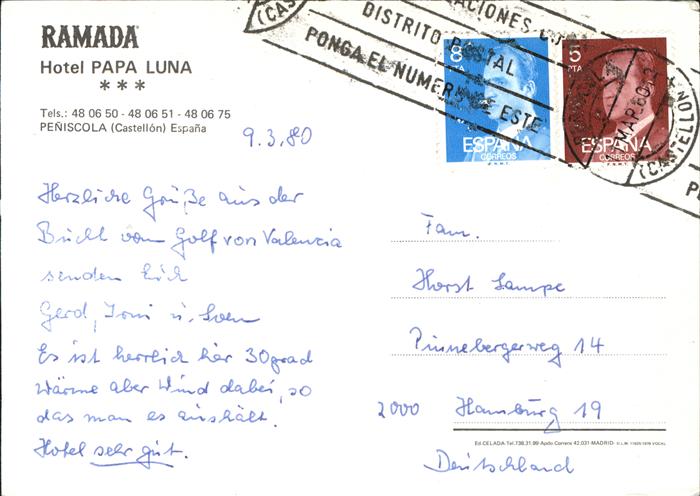 RAMADA
Hotel PAPA LUNA
***
Tels.: 48 06 50 - 48 06 51 - 48 06 75
PEÑISCOLA (Castellón) España
9.3.80
Herzliche Grüße aus der
Bucht vom Golf von Valencia
senden Euch
Gerd, Irmi u.
Es ist herrlich hier 30grad
wärme aber Wind dabei, so
das man es aushält.
Hotel sehr gut.
DISTRITO POSTAL
PONGA EL NUMERO DE ESTE
8
PTA
ESPAÑA
CORREOS
F.N.M.T.
5
PTA
ESPAÑA
CORREOS
F.N.M.T.
MAR.80
(CASTELLON)
Fam.
Horst Lampe
Pinnebergerweg 14
2000 Hamburg 19
Ed. CELADA-Tel. 738.31.99-Apdo Correos 42.031-MADRID-
Deutschland